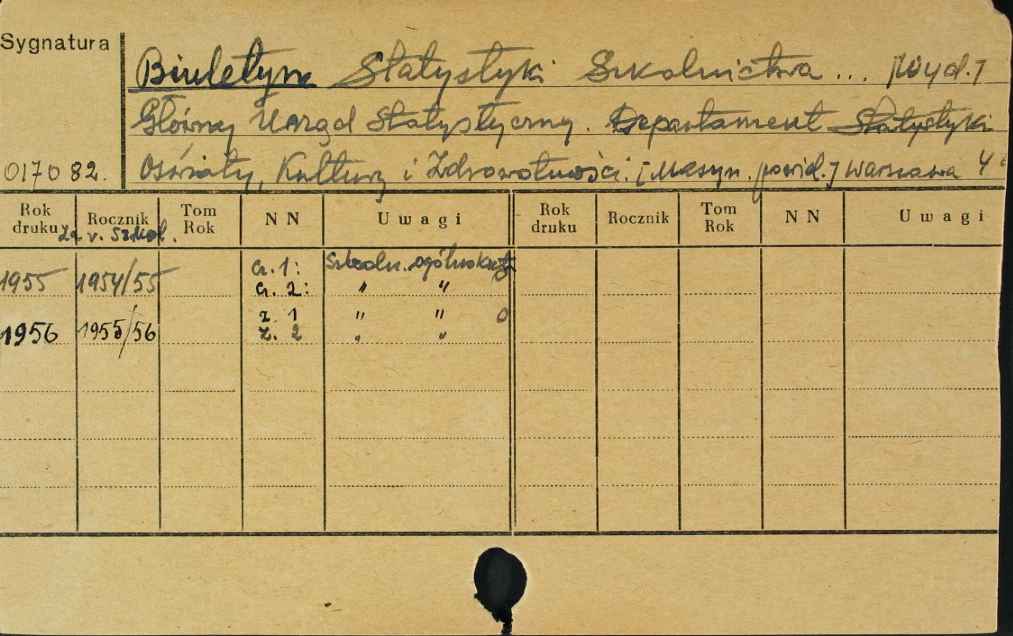 Sygnatura
Biuletyn Statystyki Szkolnictwa ... [Wyd.]
Główny Urząd Statystyczny. Departament Statystyki
017082. Oświaty, Kultury i Zdrowotności. [Maszyn. powid.] Warszawa 4°
Rok druku Rocznik Tom Rok NN Uwagi Rok druku Rocznik Tom Rok NN Uwagi
Za r. Szkol.
1955 1954/55 Cz. 1: Szkoln. ogólnokszt.
Cz. 2: " "
z. 1 " "
1956 1955/56 Z. 2 " "